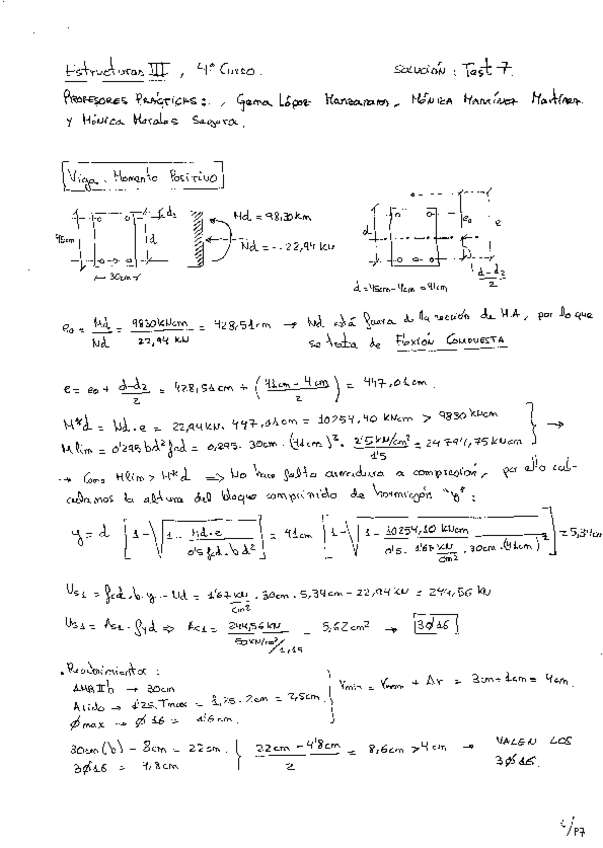 Estructuras III, 4º Curso. Solución: Test 7.
PROFESORES PRÁCTICAS: , Gema López Manzanares, MÓNICA MARTÍNEZ MARTÍNEZ
y MÓNICA Morales Segura.
Viga. Momento Positivo
d2
Md = 98,30km
45cm
d
Nd = - 22,94 KN
30cm
d
e0
e
d-d2/2
d=45cm-4cm=41cm
e0 = Md/Nd = 9830KNcm/22,94 KN = 428,51cm → Nd está fuera de la sección de H.A, por lo que
se trata de FLEXIÓN COMPUESTA
e = e0 + d-d2/2 = 428,51cm + (41cm - 4cm/2) = 447,01cm.
M*d = Nd·e = 22,94KN. 447,01cm = 10254,40 KNcm > 9830 KNcm
Mlim = 0'295bd²fcd = 0,295. 30cm. (41cm)². 2'5KN/cm²/1'5 = 24794,75KNcm →
→ Como Mlim > M*d ⇒ No hace falta armadura a compresión, por ello cal-
culamos la altura del bloque comprimido de hormigón "y":
y = d [1-√1- Md·e/0'5 fcd. bd²] = 41cm [1-√1- 10254,10 KNcm/0'5. 1'67 KN/cm². 30cm.(41cm)²] = 5,34cm
Us1 = fcd.b.y - Nd = 1'67 KN/cm². 30cm. 5,34cm - 22,94 KN = 244,56 KN
Us1 = As1. fyd ⇒ As1 = 244,56KN/50KN/cm²/1,15 = 5,62cm² → 3Ø16
. Recubrimientos:
→ 30cm
Árido → 1'25.Tmax = 1,25. 2cm = 2,5cm.
Ømax → Ø16 = 1'6cm.
rmin = rnom + Δr = 3cm+1cm = 4cm.
30cm(b) - 8cm = 22cm.
3Ø16 = 4,8cm
22cm - 4'8cm/2 = 8,6cm > 4cm → VALEN LOS
3Ø16.
1/P7